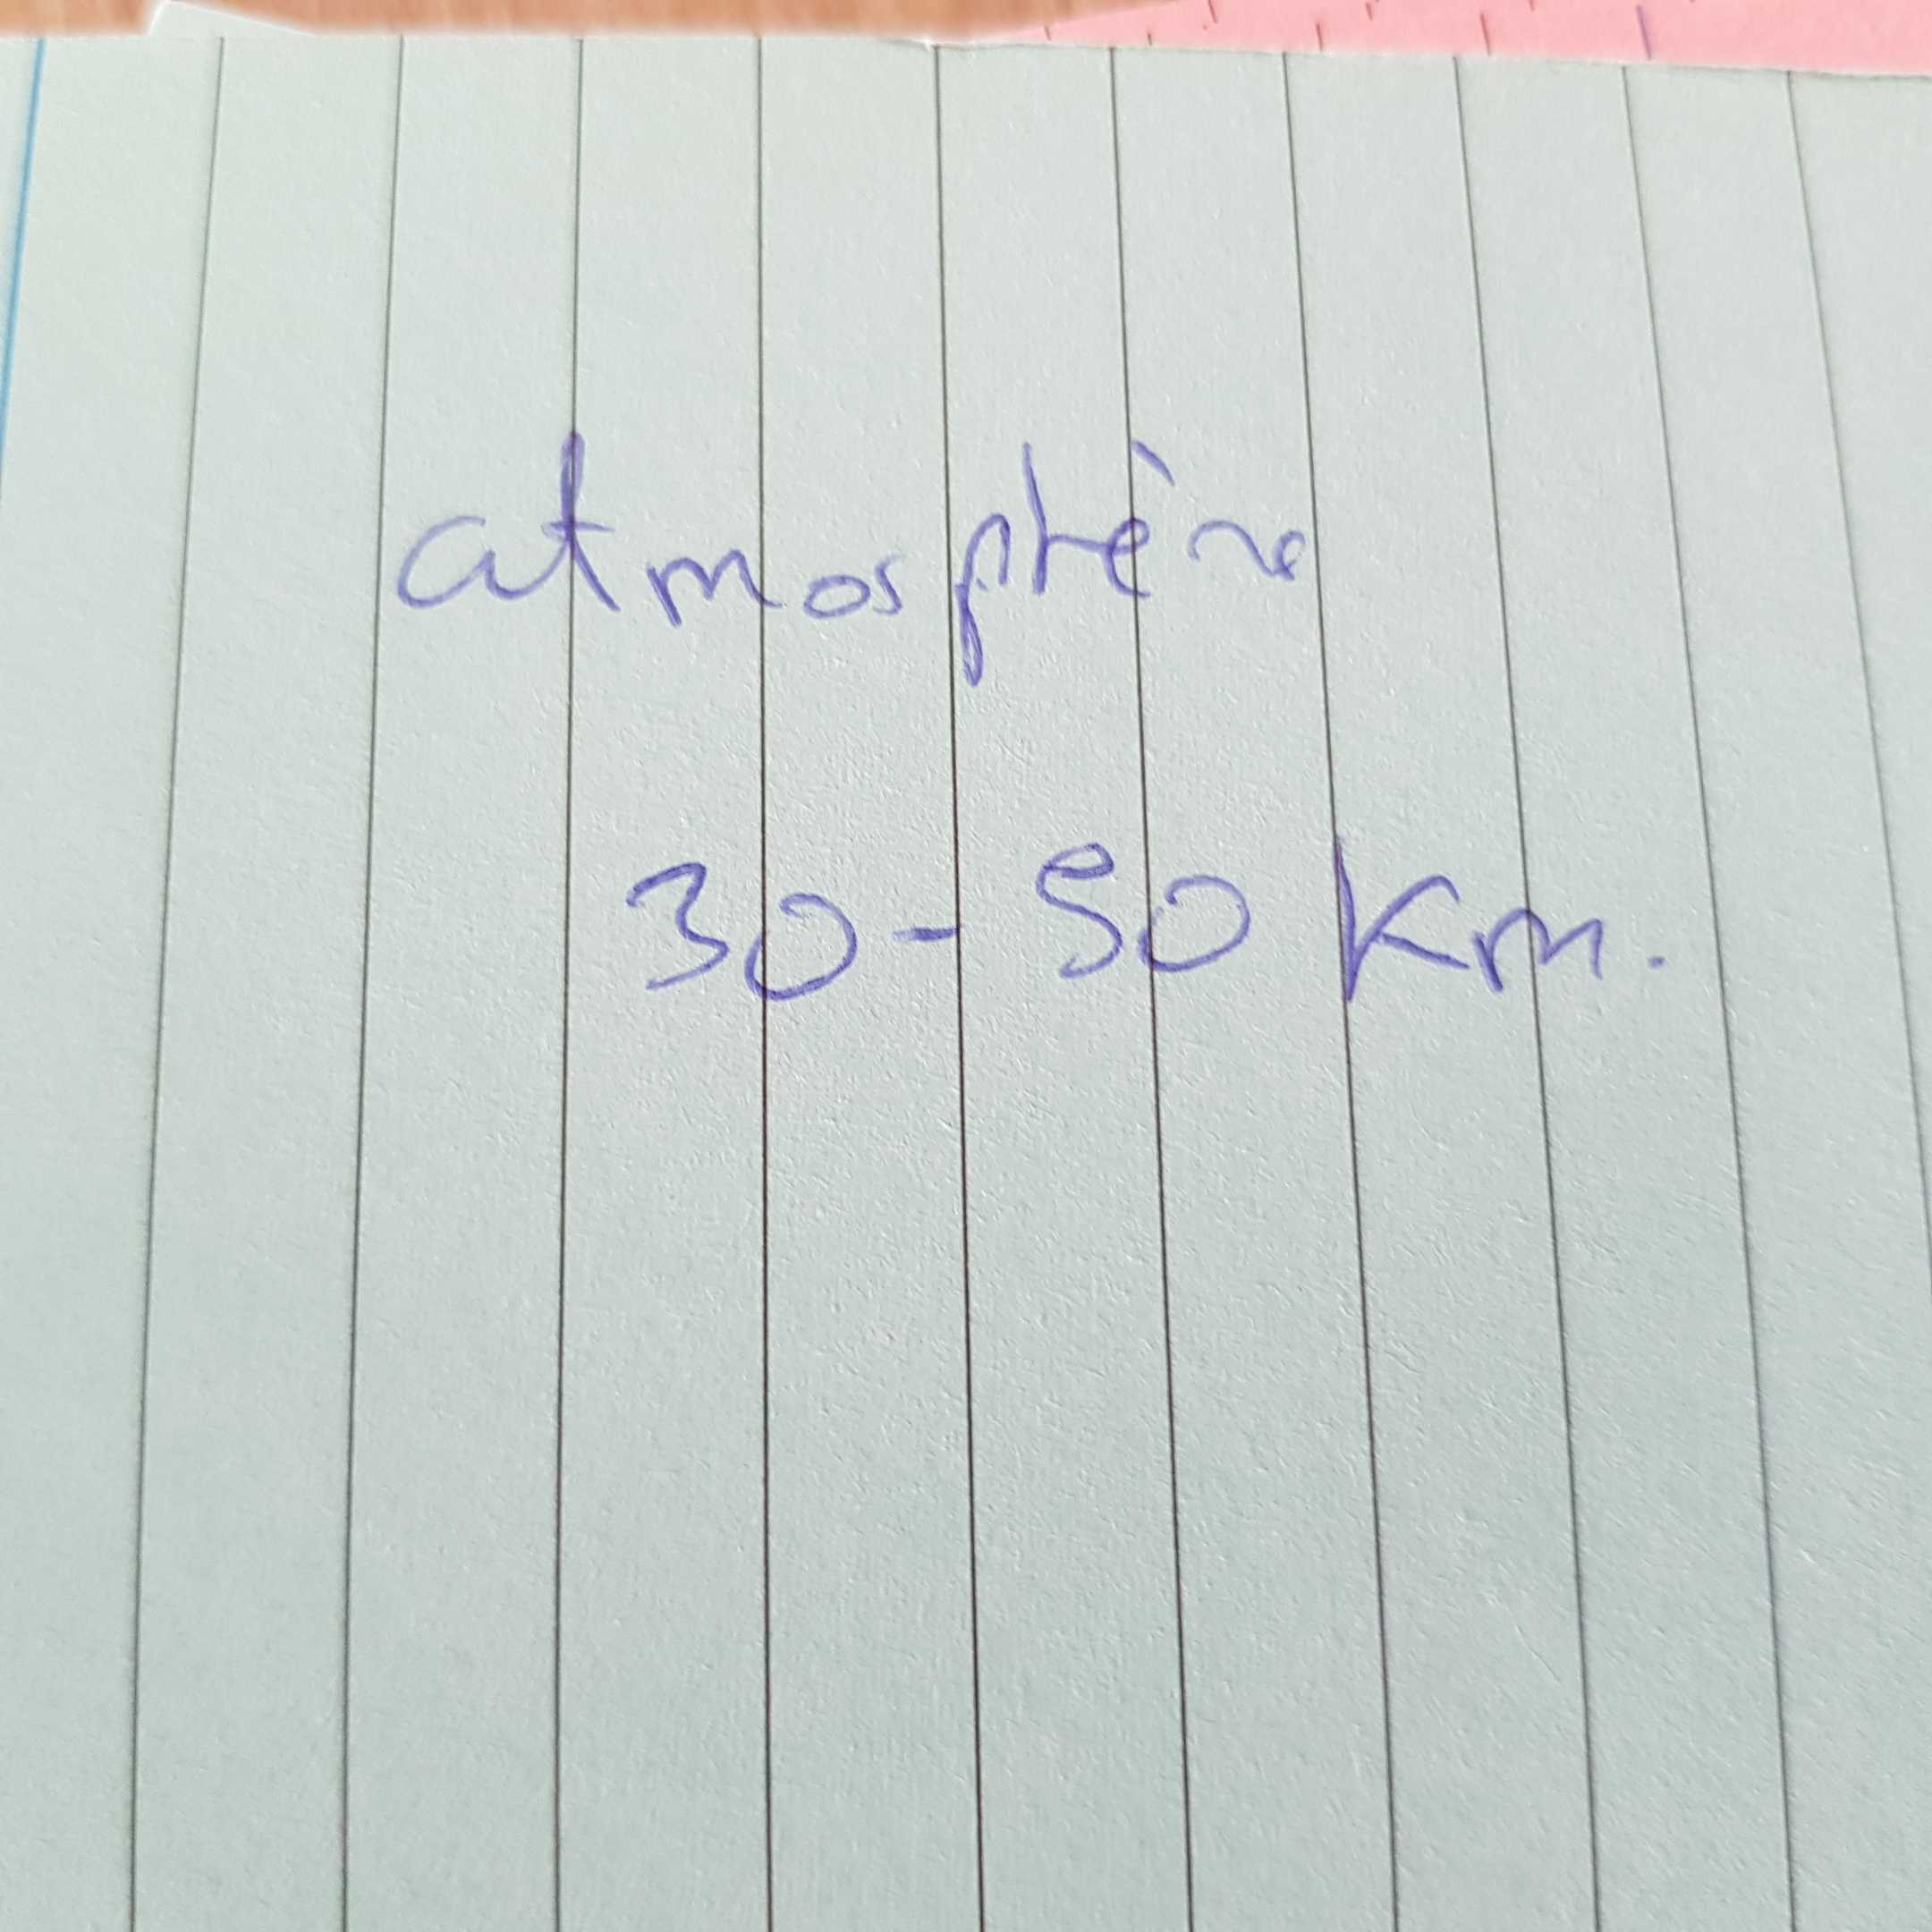 atmosphère
30 - 50 Km.